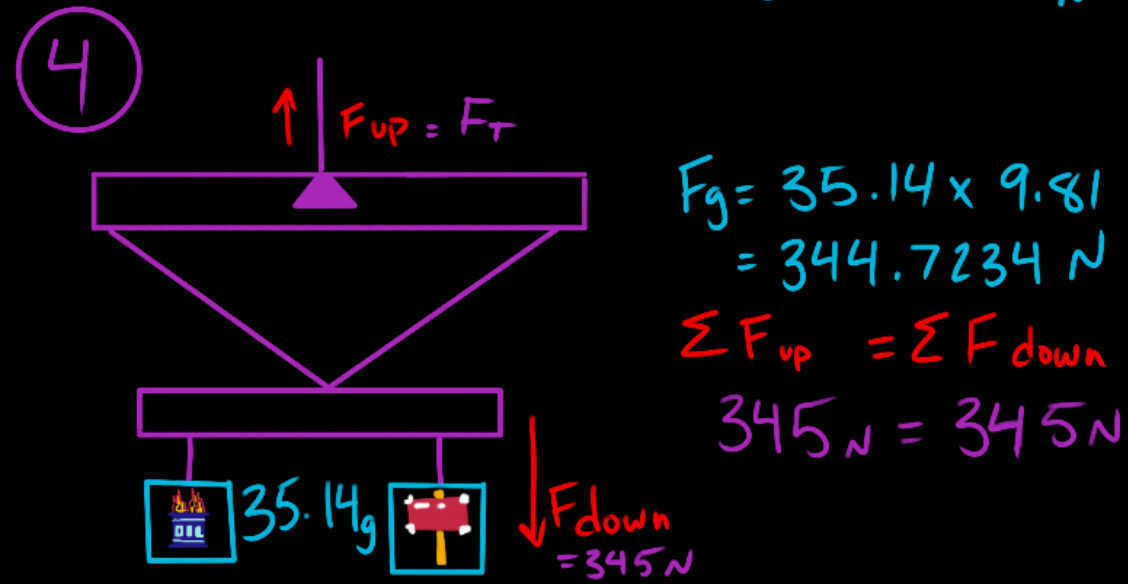 4
F up = F T
Fg = 35.14 x 9.81
= 344.7234 N
Σ F up = Σ F down
345 N = 345 N
OIL
35.14g
F down
= 345 N